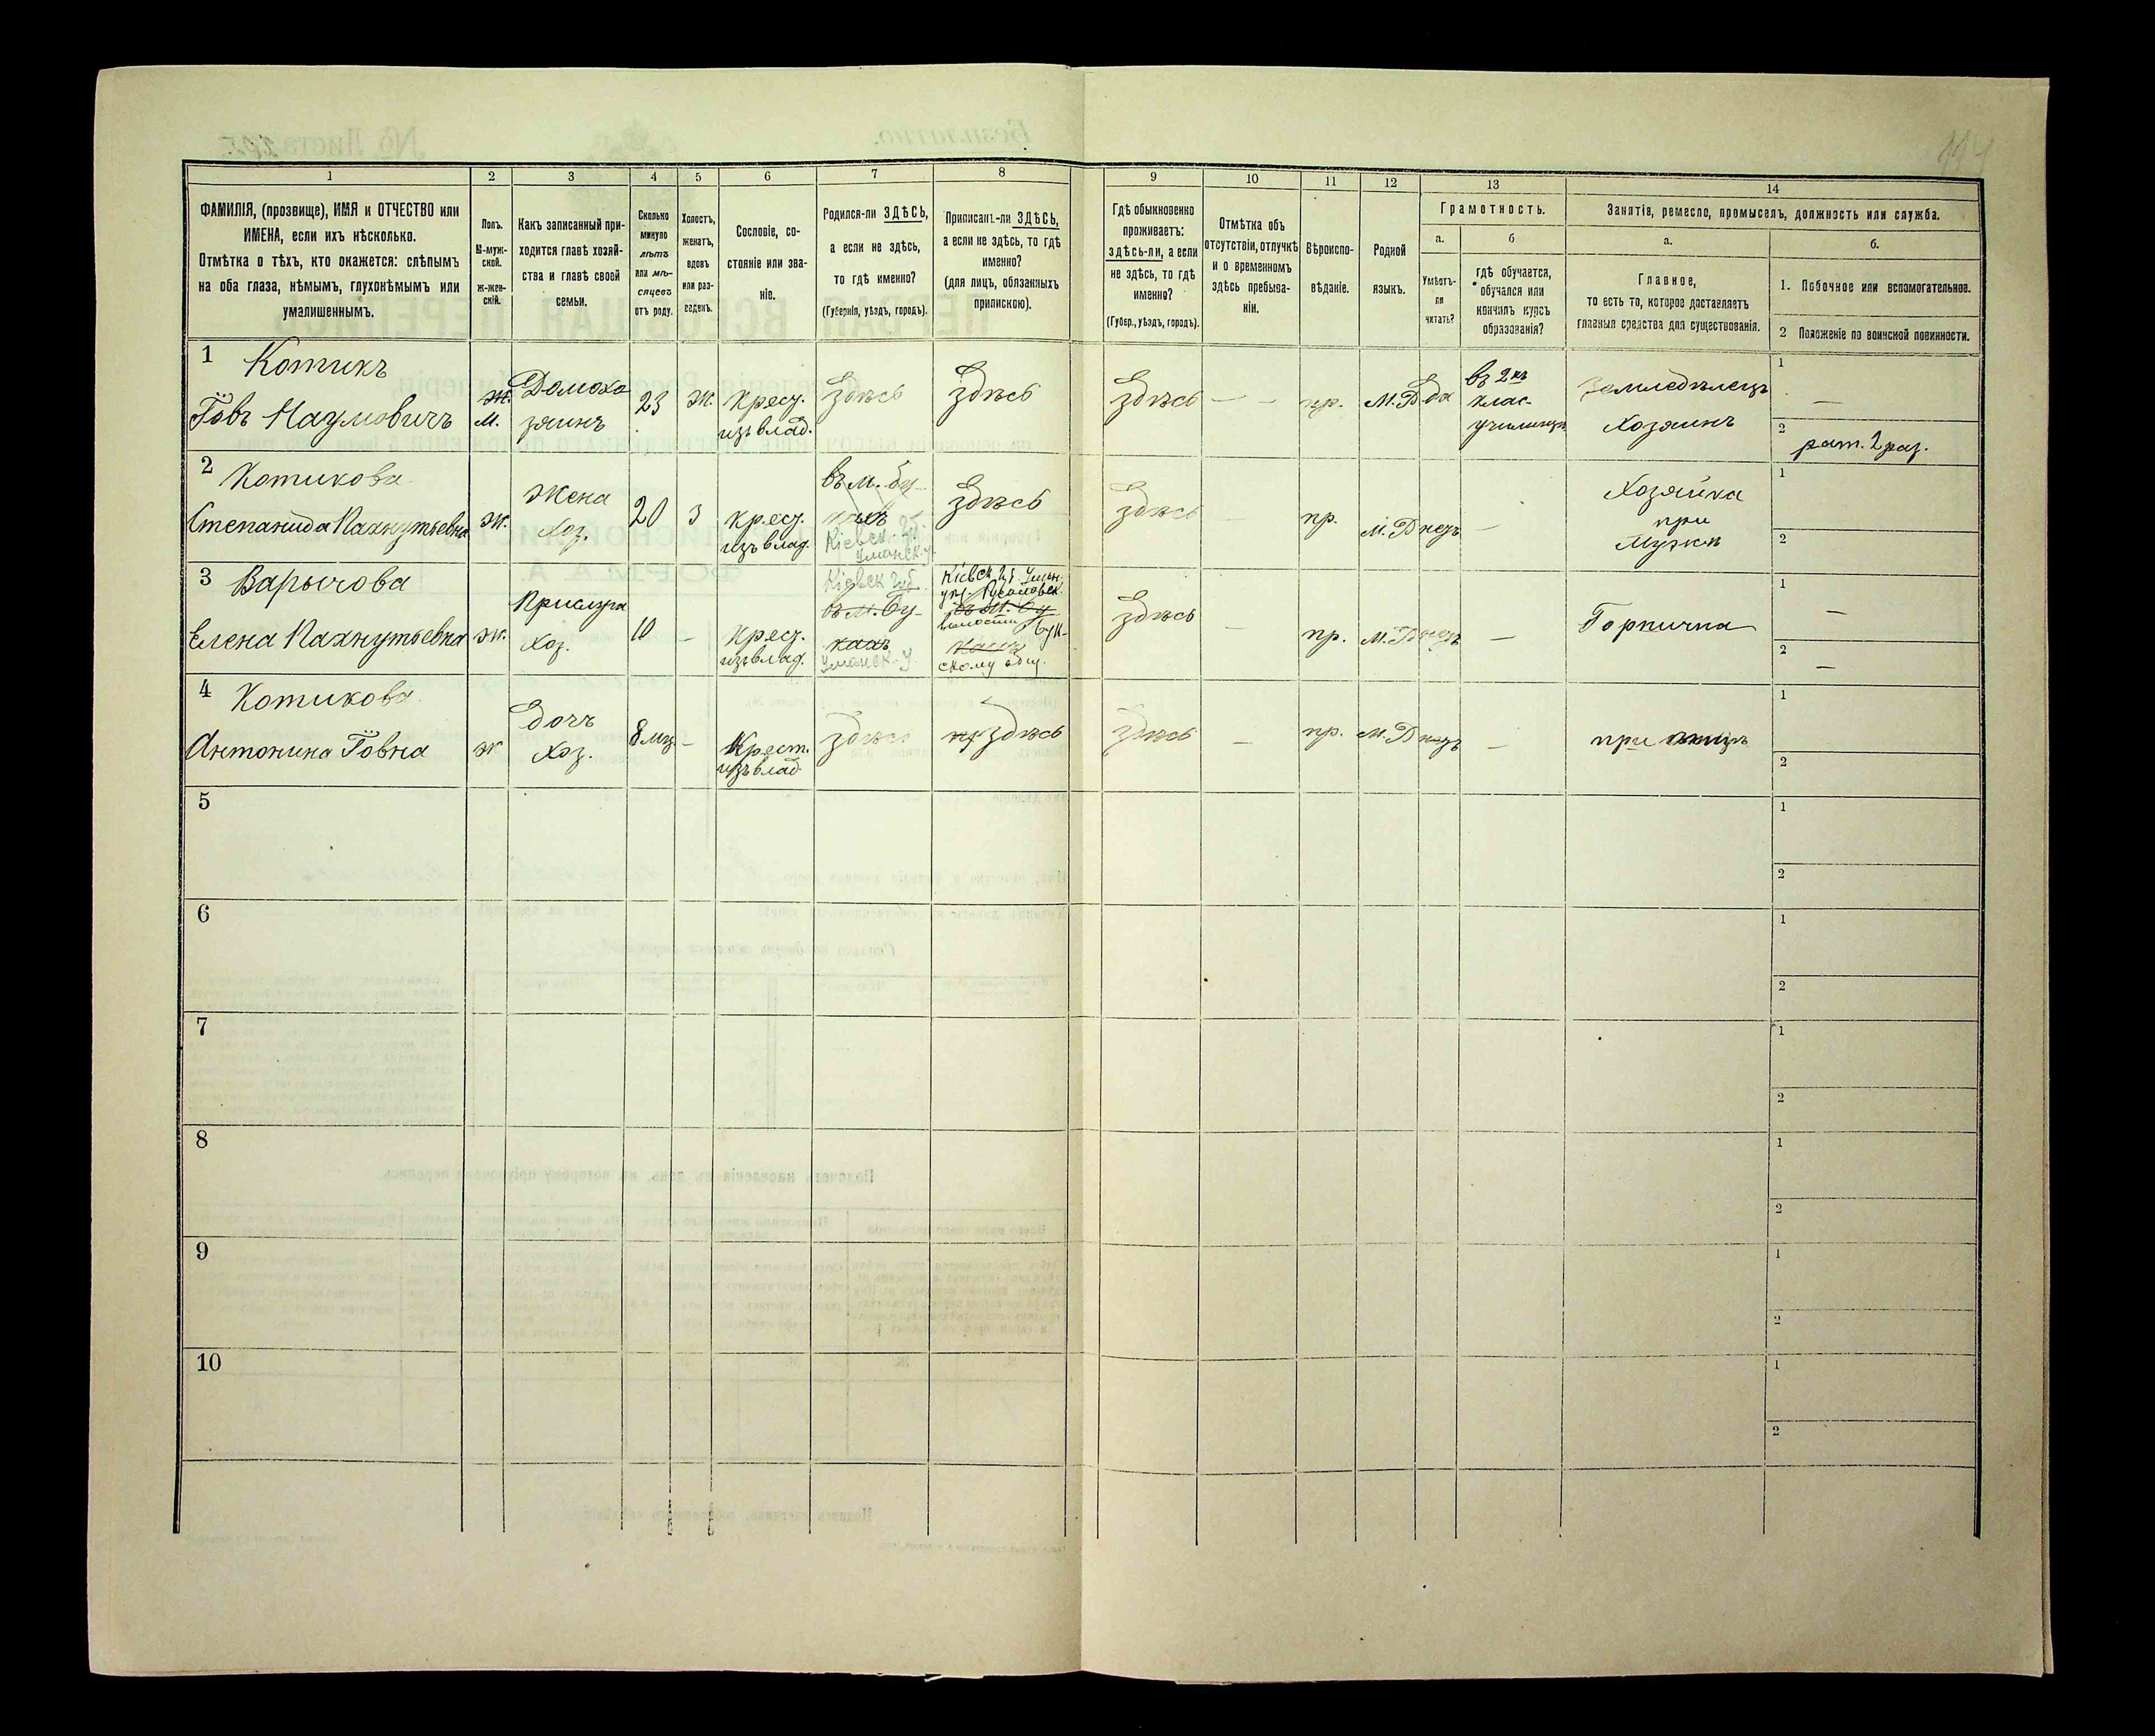 1
2
3
4
5
6
7
8
ФАМИЛІЯ, (прозвище), ИМЯ и ОТЧЕСТВО или
ИМЕНА, если ихъ нѣсколько.
Отмѣтка о тѣхъ, кто окажется: слѣпымъ
на оба глаза, нѣмымъ, глухонѣмымъ или
умалишеннымъ.
Полъ.
М-муж-
ской.
ж-жен-
скій.
Какъ записанный при-
ходится главѣ хозяй-
ства и главѣ своей
семьи.
Сколько
минуло
лѣтъ
или мѣ-
сяцевъ
отъ роду.
Холостъ,
женатъ,
вдовъ
или раз-
веденъ.
Сословіе, со-
стояніе или зва-
ніе.
Родился-ли ЗДѢСЬ,
а если не здѣсь,
то гдѣ именно?
(Губернія, уѣздъ, городъ).
Приписанъ-ли ЗДѢСЬ,
а если не здѣсь, то гдѣ
именно?
(для лицъ, обязанныхъ
припискою).
9
10
11
12
13
14
Гдѣ обыкновенно
проживаетъ:
здѣсь-ли, а если
не здѣсь, то гдѣ
именно?
(Губер., уѣздъ, городъ).
Отмѣтка объ
отсутствіи, отлучкѣ
и о временномъ
здѣсь пребыва-
ніи.
Вѣроиспо-
вѣданіе.
Родной
языкъ.
Грамотность.
а.
Умѣетъ-
ли
читать?
б
гдѣ обучается,
обучался или
кончилъ курсъ
образованія?
Занятіе, ремесло, промыселъ, должность или служба.
а.
Главное,
то есть то, которое доставляетъ
главныя средства для существованія.
б.
1. Побочное или вспомогательное.
2 Положеніе по воинской повинности.
1 Котикъ
Іовъ Наумовичъ
Ж.
М.
Домохо
зяинъ
23
Ж.
Крест.
изъ влад.
Здѣсь
Здѣсь
Здѣсь
— —
пр.
М.Р
да
въ 2хъ
клас-
училищѣ
Земледѣлецъ
Хозяинъ
1
—
2
рат. 2 раз.
2 Котикова
Степанида Пахнутьевна
Ж.
Жена
Хоз.
20
З
Крест.
изъ влад.
въ м. Бу-
кахъ
Кіевск. Губ.
Уманск. у.
Здѣсь
Здѣсь
—
пр.
М.Р
нетъ
—
Хозяйка
при
Мужѣ
1
2
3 Варычова
Елена Пахнутьевна
Ж.
Прислуга
Хоз.
10
—
Крест.
изъ влад.
Кіевск Губ.
въ м. Бу-
кахъ
Уманск. у.
Кіевск. Губ. Уман.
въ м. Бу
волости Бук-
скому общ.
Здѣсь
—
пр.
М.Р
нетъ
—
Горнична
1
—
2
—
4 Котикова
Антонина Іовна
Ж
Дочъ
Хоз.
8 мц
—
Крест.
изъ влад
Здѣсь
Здѣсь
Здѣсь
—
пр.
М.Р
нетъ
—
при отцѣ
1
2
5
1
2
6
1
2
7
1
2
8
1
2
9
1
2
10
1
2